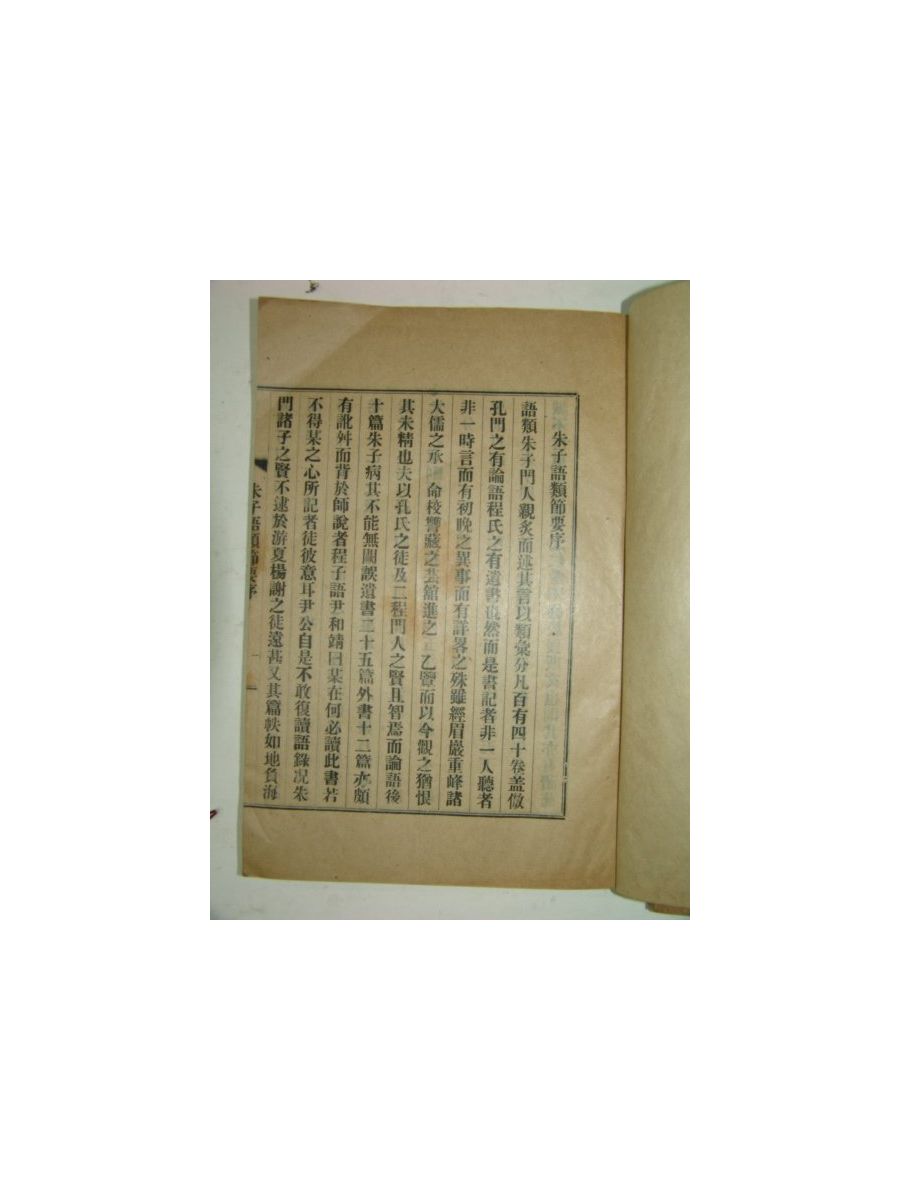 朱子語類節要序
語類朱子門人親炙而述其言以類彙分凡百有四十卷盖倣
孔門之有論語程氏之有遺書也然而是書記者非一人聽者
非一時言而有初晩之異事而有詳畧之殊雖經眉巖重峰諸
大儒之承 命校讐藏之芸舘進之 乙覽而以今觀之猶恨
其未精也夫以孔氏之徒及二程門人之賢且智焉而論語後
十篇朱子病其不能無闕誤遺書二十五篇外書十二篇亦頗
有訛舛而背於師說者程子語尹和靖曰某在何必讀此書若
不得某之心所記者徒彼意耳尹公自是不敢復讀語錄况朱
門諸子之賢不逮於游夏楊謝之徒遠甚又其篇帙如地負海
朱子語類節要序 一